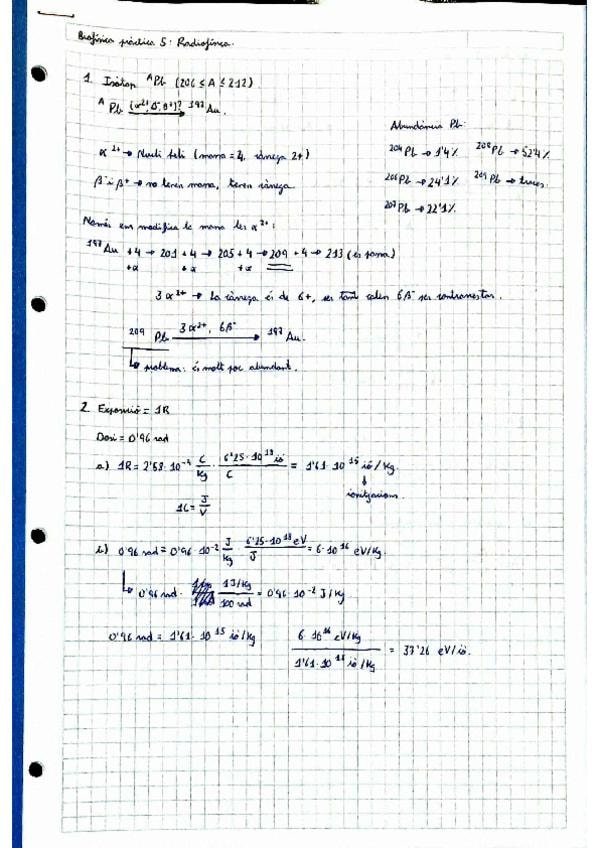 Biofísica pràctica 5: Radiofísica.
1. Isòtop ᴬPb (206 ≤ A ≤ 212)
ᴬPb (α²⁺, β⁻, β⁺)? → ¹⁹⁷Au.
Abundància Pb:
²⁰⁴Pb → 1'4% ²⁰⁸Pb → 52'4%
²⁰⁶Pb → 24'1% ²⁰⁹Pb → traces.
²⁰⁷Pb → 22'1%
α²⁺ → Nucli heli (massa = 4, càrrega 2+)
β⁻ i β⁺ → no tenen massa, tenen càrrega.
Només em modifica la massa les α²⁺:
¹⁹⁷Au +4 → 201 +4 → 205 +4 → 209 +4 → 213 (es passa)
+α +α +α
3α²⁺ → La càrrega és de 6+, per tant calen 6β⁻ per contrarestar.
²⁰⁹Pb 3α²⁺, 6β⁻ → ¹⁹⁷Au.
↳ problema: és molt poc abundant.
2. Exposició = 1R
Dosi = 0'96 rad
a) 1R = 2'58·10⁻⁴ C/Kg · 6'25·10¹⁸ ió/C = 1'61·10¹⁵ ió/Kg.
↓
ionitzacions.
1C = J/V
b) 0'96 rad = 0'96·10⁻² J/Kg · 6'25·10¹⁸ eV/J = 6·10¹⁶ eV/Kg.
↳ 0'96 rad · 1J/Kg / 100 rad = 0'96·10⁻² J/Kg.
0'96 rad = 1'61·10¹⁵ ió/Kg 6·10¹⁶ eV/Kg / 1'61·10¹⁵ ió/Kg = 37'26 eV/ió.